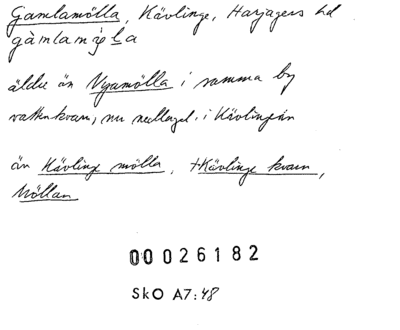 Gamlamölla, Kävlinge, Harjagers hd
gàmlamø̀ḷa
äldre än Nyamölla i samma by
vattenkvarn, nu nedlagd. i Kävlingeån
än Kävlinge mölla, +Kävlinge kvarn,
Möllan
00026182
SkO A7:48